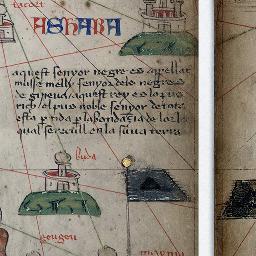 tacost
ASHARA
aquest senyor negre es apellat
musse melly senyor dels negres
de gineua aquest rey es lo pus
rich el pus noble senyor de tota
esta p tida p labondançia de lor lo
qual se recull en la suua terra
buda
geugeu